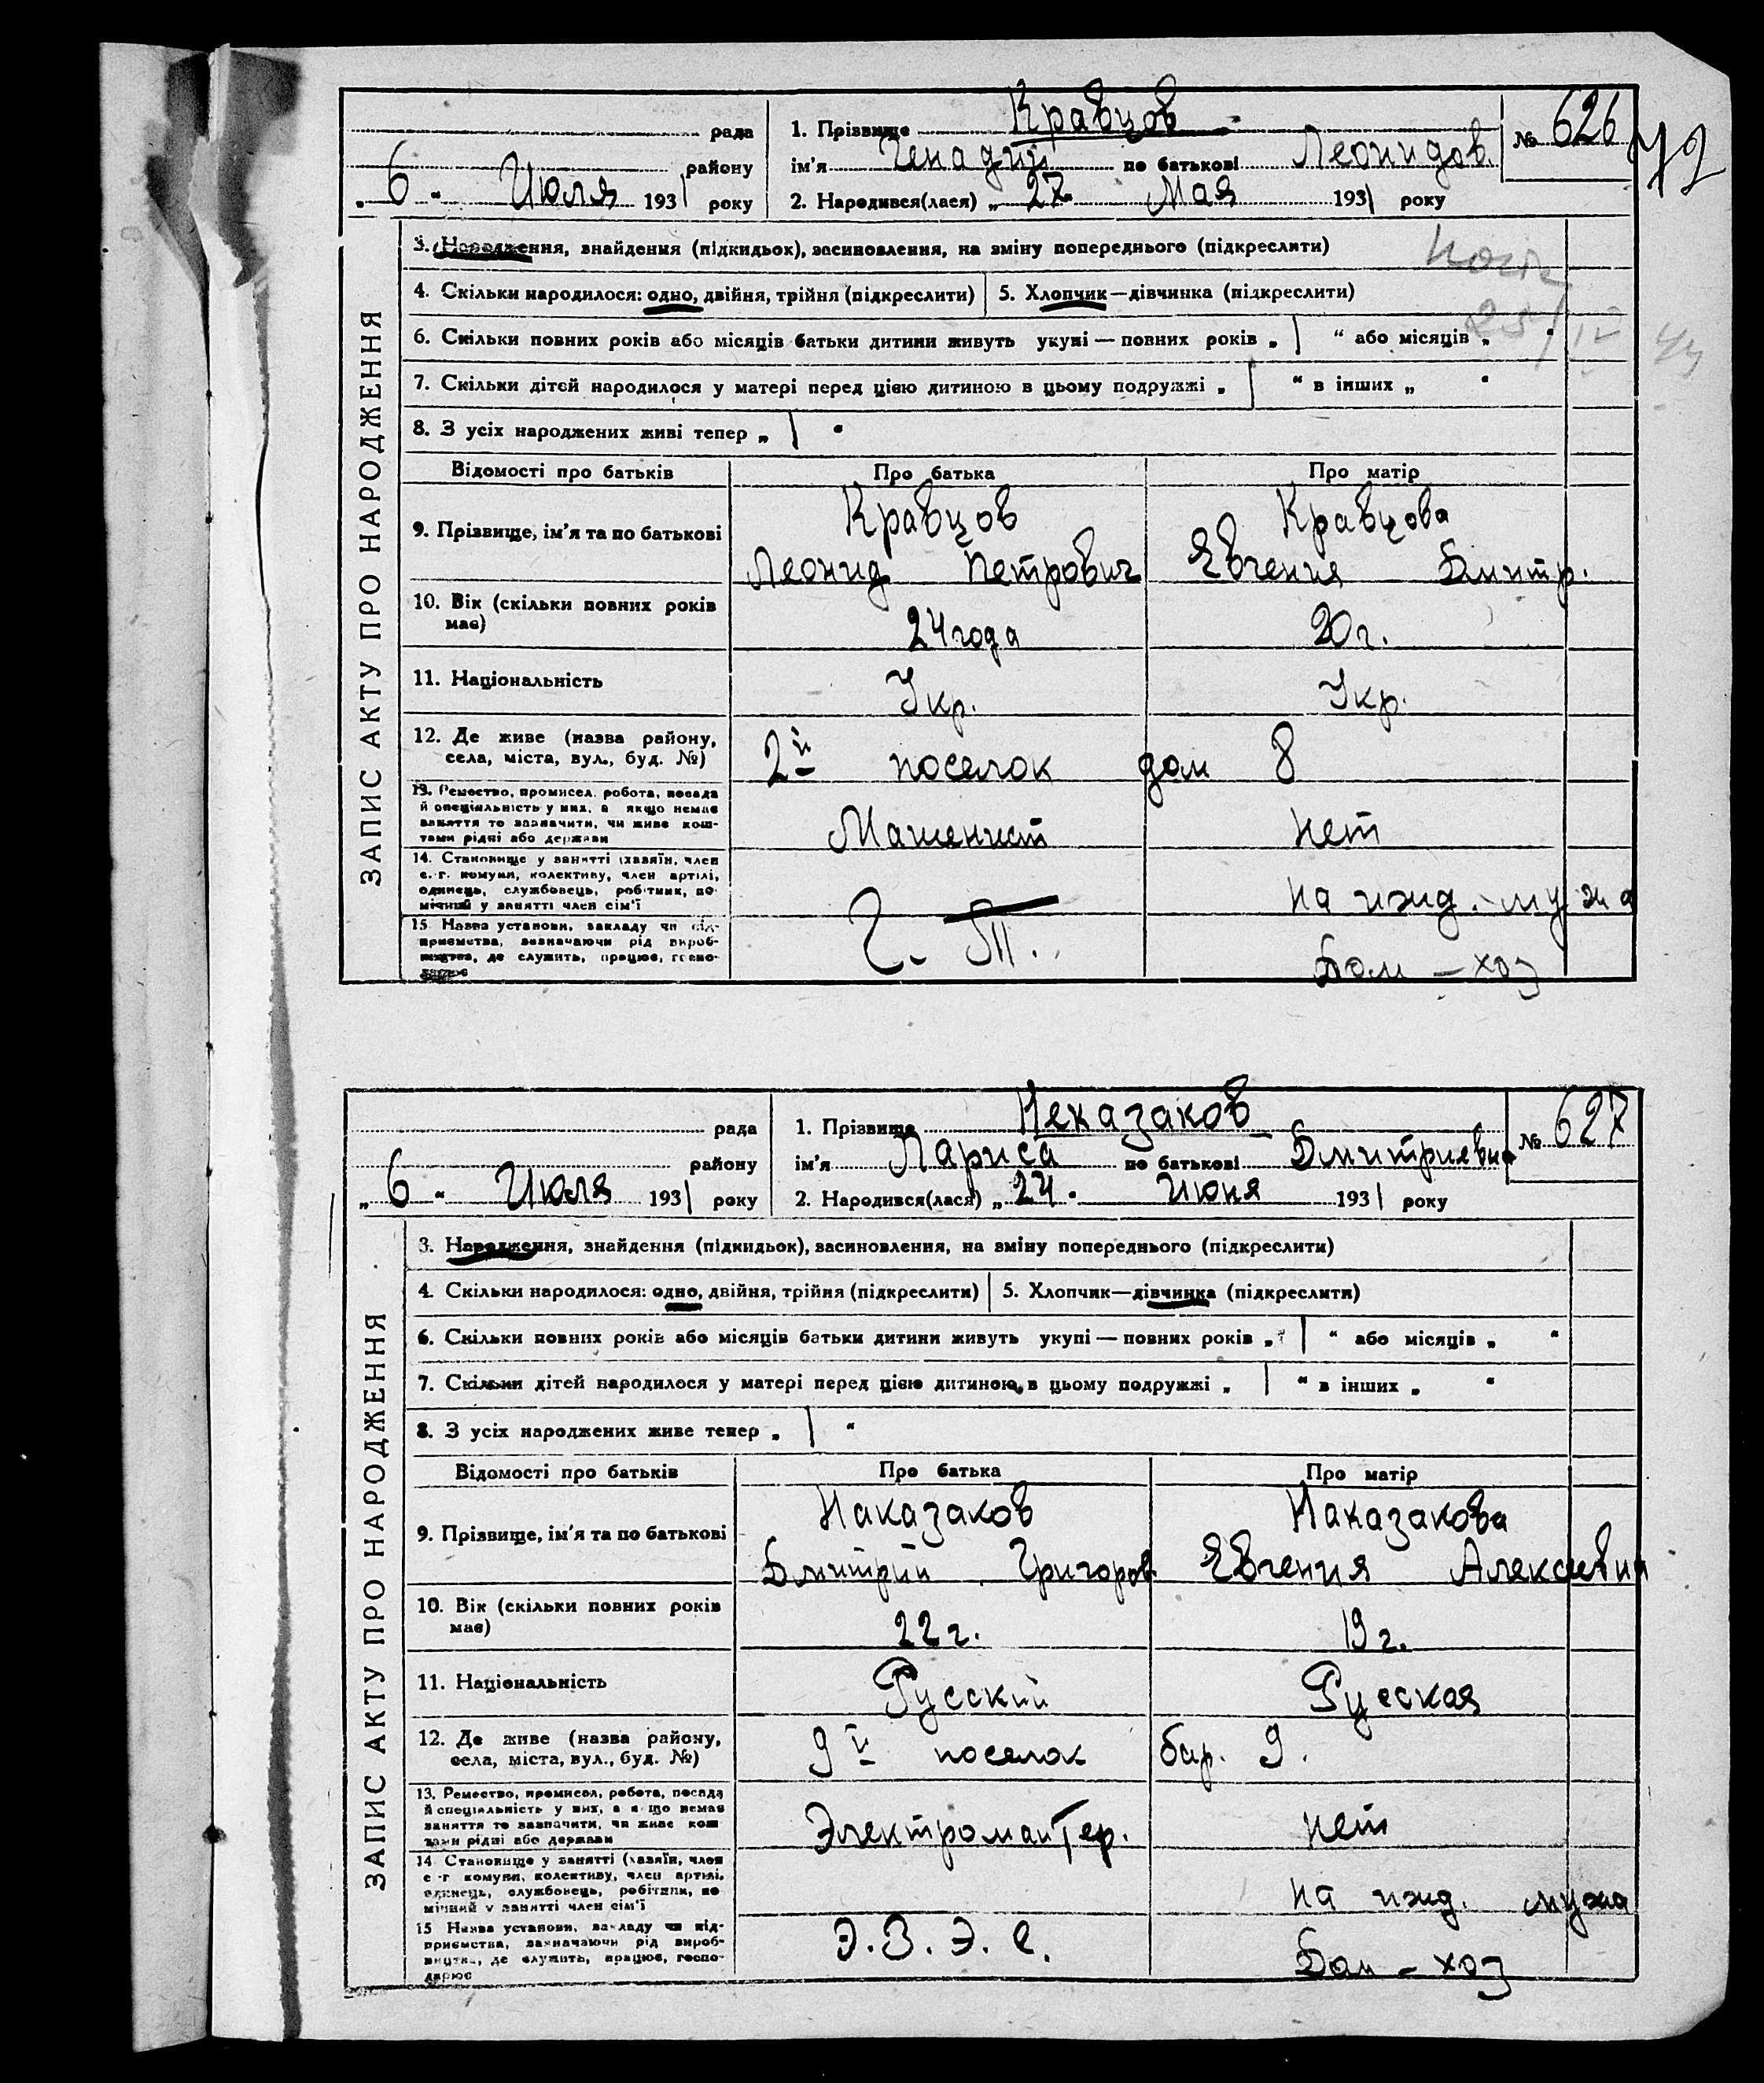 Кравцов
рада 1. Прізвище № 626
району ім'я Генадий по батькові Леонидов. 72
„6" Июля 1931 року 2. Народився(лася) „27" Мая 1931 року
ЗАПИС АКТУ ПРО НАРОДЖЕННЯ
3. Народження, знайдення (підкидьок), засиновлення, на зміну попереднього (підкреслити)
4. Скільки народилося: одно, двійня, трійня (підкреслити) 5. Хлопчик—дівчинка (підкреслити)
6. Скільки повних років або місяців батьки дитини живуть укупі — повних років „ 1 " або місяців „ "
7. Скільки дітей народилося у матері перед цією дитиною в цьому подружжі „ " в інших „ "
8. З усіх народжених живі тепер „ 1 "
Відомості про батьків Про батька Про матір
9. Прізвище, ім'я та по батькові Кравцов Кравцова
Леонид Петрович Евгения Дмитр.
10. Вік (скільки повних років має) 24 года 20 г.
11. Національність Укр. Укр.
12. Де живе (назва району, села, міста, вул., буд. №) 2й поселок дом 8
13. Ремество, промисел, робота, посада й спеціяльність у них, а якщо немає заняття то зазначити, чи живе коштами рідні або держави Машенист нет
14. Становище у занятті (хазяїн, член с.-г. комуни, колективу, член артілі, одинець, службовець, робітник, помічний у занятті член сім'ї на ижд. мужа
15. Назва установи, закладу чи підприємства, зазначаючи рід виробництва, де служить, працює, госпо-дарює Дом – хоз
Неказаков
рада 1. Прізвище № 627
району ім'я Лариса по батькові Дмитриевна
„6" Июля 1931 року 2. Народився(лася) „24" июня 1931 року
ЗАПИС АКТУ ПРО НАРОДЖЕННЯ
3. Народження, знайдення (підкидьок), засиновлення, на зміну попереднього (підкреслити)
4. Скільки народилося: одно, двійня, трійня (підкреслити) 5. Хлопчик—дівчинка (підкреслити)
6. Скільки повних років або місяців батьки дитини живуть укупі — повних років „ 1 " або місяців „ "
7. Скільки дітей народилося у матері перед цією дитиною в цьому подружжі „ " в інших „ "
8. З усіх народжених живе тепер „ 1 "
Відомості про батьків Про батька Про матір
9. Прізвище, ім'я та по батькові Наказаков Наказакова
Дмитрий Григоров. Евгения Алексеевна
10. Вік (скільки повних років має) 22 г. 19 г.
11. Національність Русский Русская
12. Де живе (назва району, села, міста, вул., буд. №) 9й поселок бар. 9.
13. Ремество, промисел, робота, посада й спеціяльність у них, а якщо немає заняття то зазначити, чи живе коштами рідні або держави Электромантер. нет
14. Становище у занятті (хазяїн, член с.-г. комуни, колективу, член артілі, одинець, службовець, робітник, помічний у занятті член сім'ї на ижд. мужа
15. Назва установи, закладу чи підприємства, зазначаючи рід виробництва, де служить, працює, господарює Э.З.Э.С. Дом – хоз